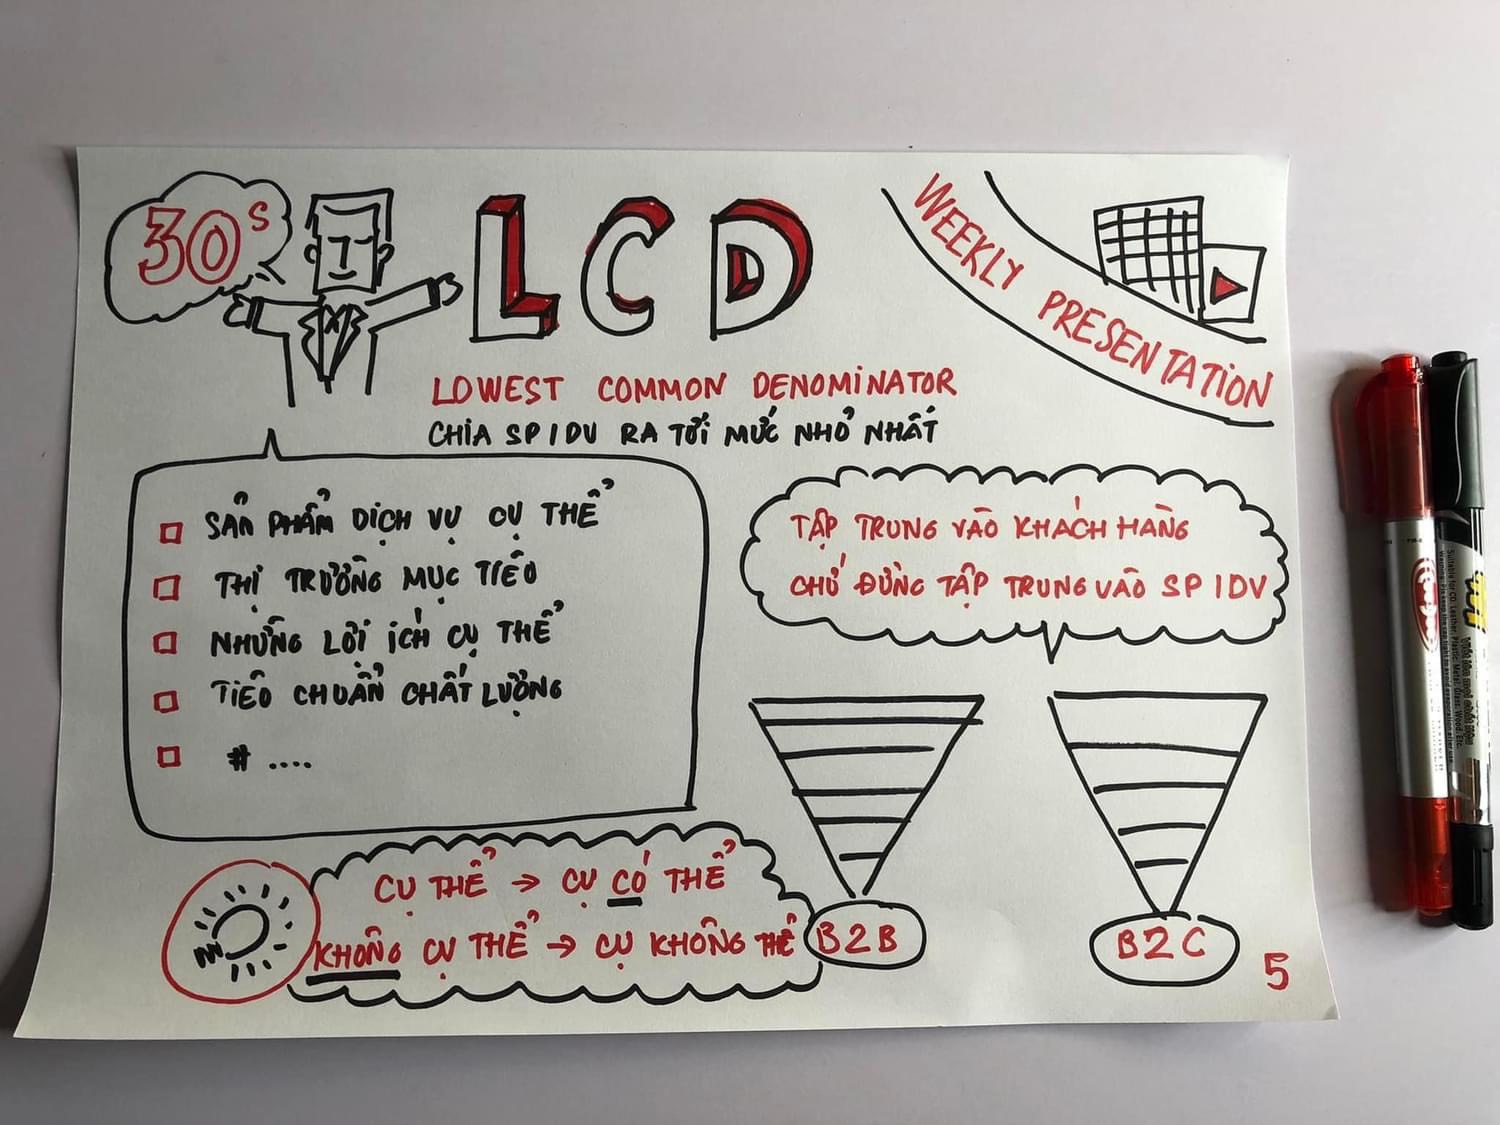 30s
LCD
WEEKLY PRESENTATION
LOWEST COMMON DENOMINATOR
CHIA SP/DV RA TỚI MỨC NHỎ NHẤT
SẢN PHẨM DỊCH VỤ CỤ THỂ
THỊ TRƯỜNG MỤC TIÊU
NHỮNG LỢI ÍCH CỤ THỂ
TIÊU CHUẨN CHẤT LƯỢNG
# ....
TẬP TRUNG VÀO KHÁCH HÀNG
CHỨ ĐỪNG TẬP TRUNG VÀO SP/DV
CỤ THỂ → CỤ CÓ THỂ
KHÔNG CỤ THỂ → CỤ KHÔNG THỂ
B2B
B2C
5